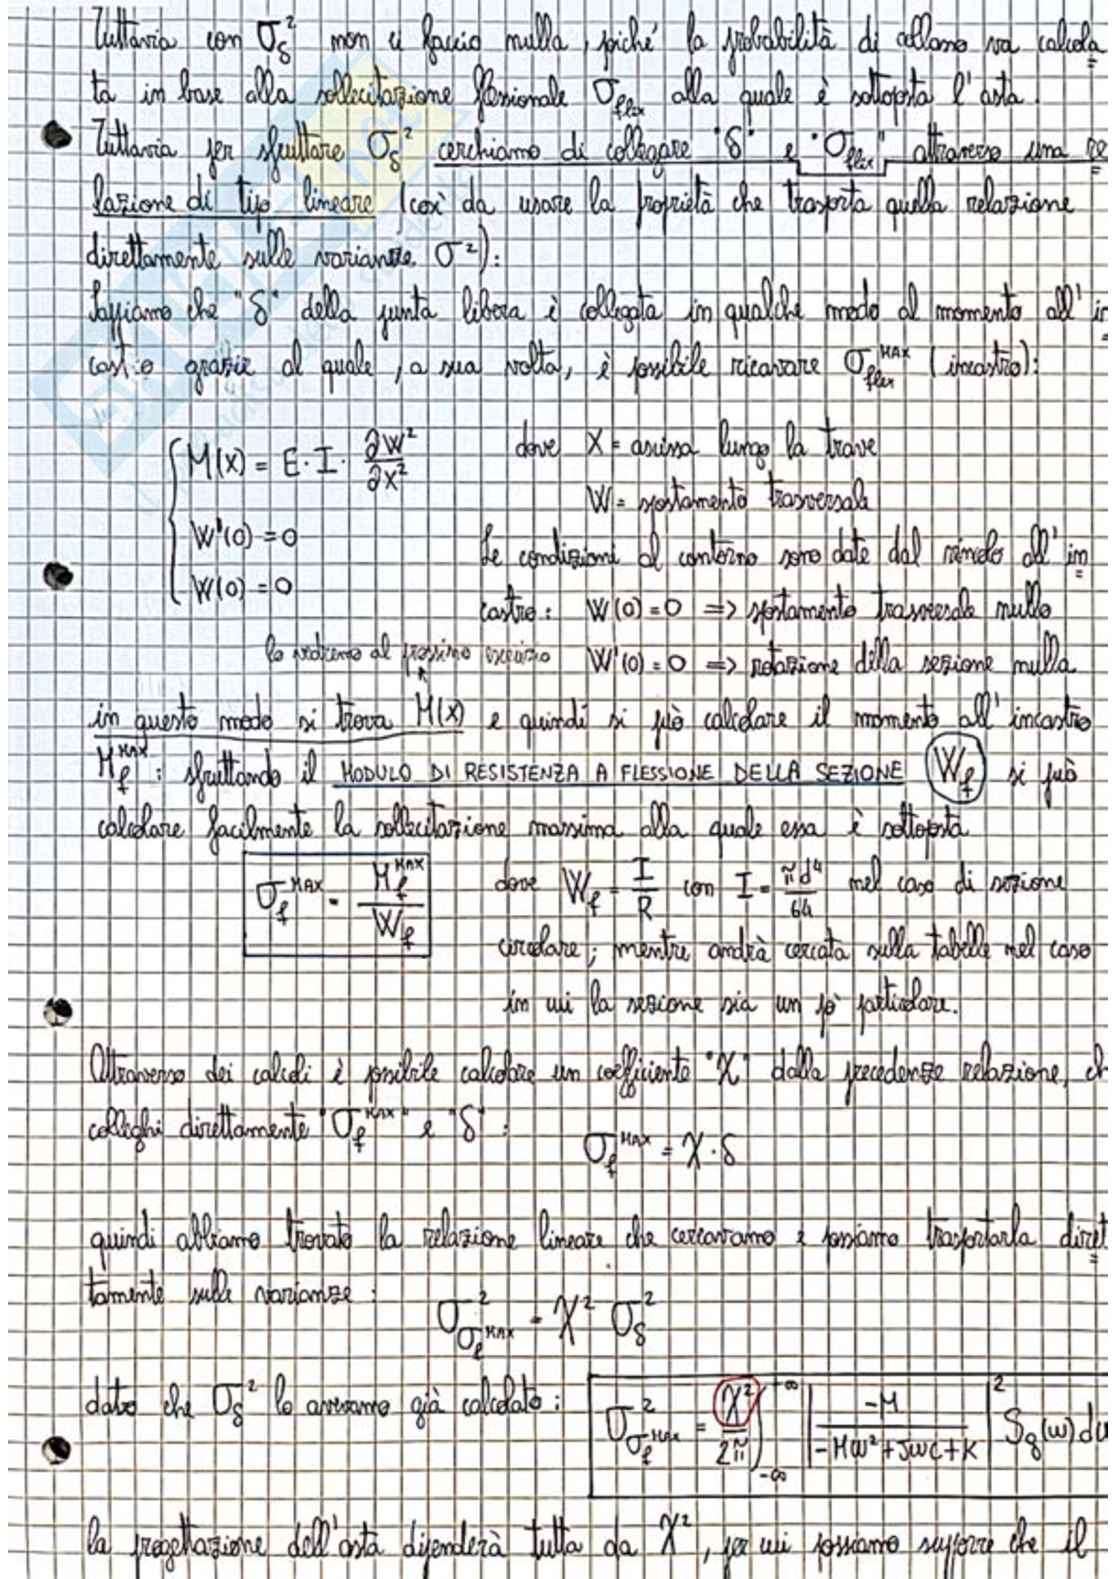 Tuttavia con σ_δ² non ci faccio nulla, poiché la probabilità di collasso va calcola
ta in base alla sollecitazione flessionale σ_flex alla quale è sottoposta l'asta.
Tuttavia per sfruttare σ_δ² cerchiamo di collegare "δ" e "σ_flex" attraverso una re
lazione di tipo lineare (così da usare la proprietà che trasporta quella relazione
direttamente sulle varianze σ²):
Sappiamo che "δ" della punta libera è collegata in qualche modo al momento all'in
castro grazie al quale, a sua volta, è possibile ricavare σ_flex^MAX (incastro):
M(x) = E·I· ∂w²/∂x² dove X = ascissa lungo la trave
W = spostamento trasversale
W'(0) = 0 Le condizioni al contorno sono date dal vincolo all'in
W(0) = 0 castro: W(0) = 0 => spostamento trasversale nullo
lo vedremo al prossimo esercizio W'(0) = 0 => rotazione della sezione nulla
in questo modo si trova M(x) e quindi si può calcolare il momento all'incastro
M_f^MAX: sfruttando il MODULO DI RESISTENZA A FLESSIONE DELLA SEZIONE W_f si può
calcolare facilmente la sollecitazione massima alla quale essa è sottoposta
σ_f^MAX = M_f^MAX / W_f dove W_f = I/R con I = πd⁴/64 nel caso di sezione
circolare; mentre andrà cercata sulla tabelle nel caso
in cui la sezione sia un pò particolare.
Attraverso dei calcoli è possibile calcolare un coefficiente "χ" dalla precedenze relazione, ch
colleghi direttamente "σ_f^MAX" e "δ":
σ_f^MAX = χ·δ
quindi abbiamo trovato la relazione lineare che cercavamo e possiamo trasportarla diret
tamente sulle varianze:
σ²_σ_f^MAX = χ² σ_δ²
dato che σ_δ² lo avevamo già calcolato: σ²_σ_f^MAX = χ²/2π ∫_-∞^+∞ |-M / (-Mω²+Jωc+K)|² S_g(ω) dω
la progettazione dell'asta dipenderà tutta da χ², per cui possiamo supporre che il